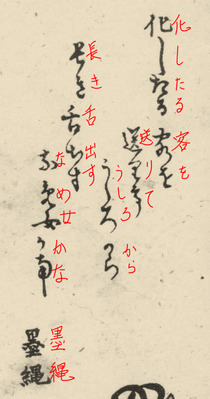 化したる客を
送りて
うしろから
長き舌出す
なめ女かな
墨縄